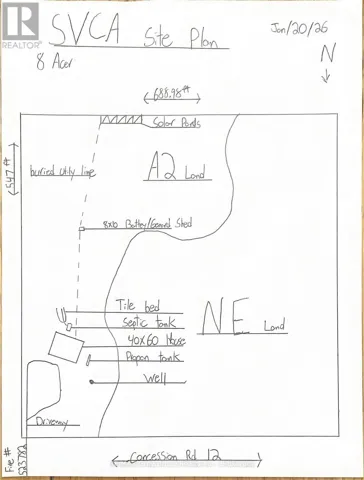 R
REALTOR®
SVCA Site Plan
Jan/20/26
8 Acer
N
688.98 ft
Solar Panls
547 ft
buried utily line
A2 Land
8x10 Battey/Genard Shed
Tile bed
Septic tank
40x60 House
NE Land
Propan tank
Well
Driveway
Concession Rd 12
Fire #
523782